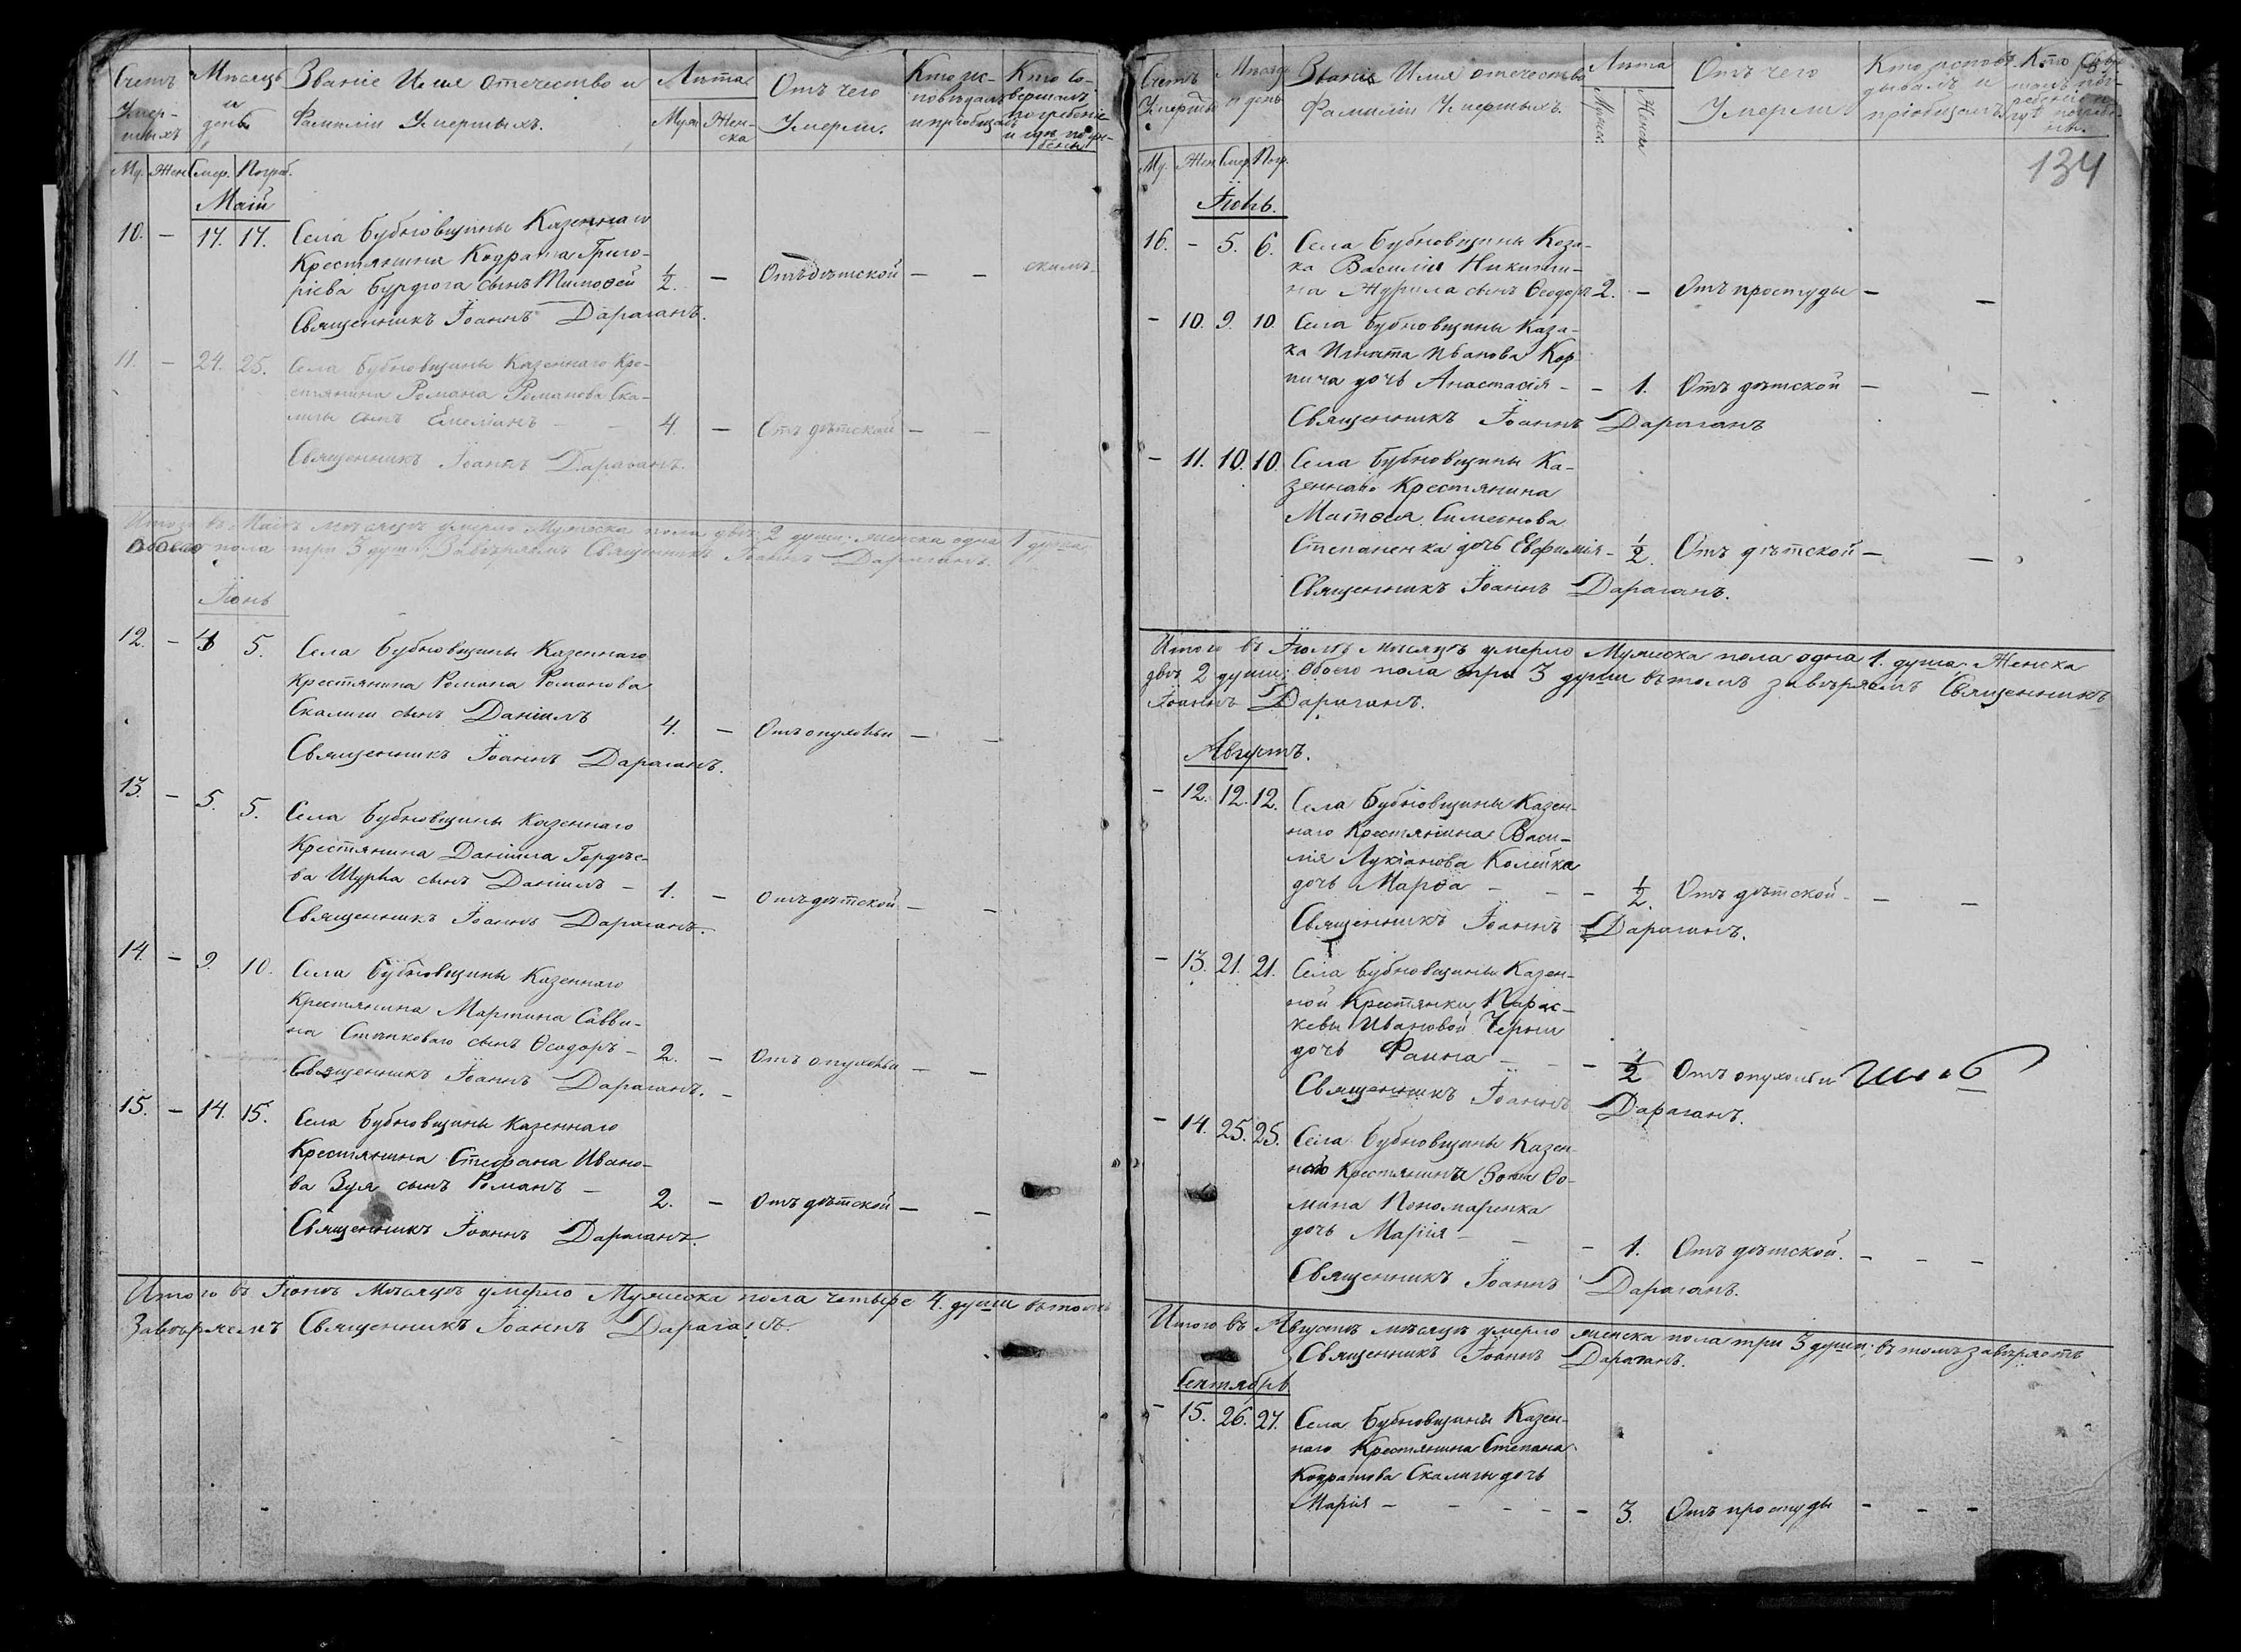 Счетъ Умер-шихъ
Мѣсяцъ и день
Званіе Имя Отечество и Фамиліи Умершихъ.
Лѣта
Муж Жен-ска
Отъ чего Умерли.
Кто ис-повѣдалъ и пріобщалъ
Кто Со-вершалъ погребеніе и гдѣ погре-бены
Му. Жен Смер. Погреб.
Маій
10. — 17. 17. Села Бубновщины Казеннаго
Крестянина Кодрата Григо-
ріева Бурдюга сынъ Тимоѳей ½. — Отъ дѣтской — —
Священникъ Іоаннъ Дараганъ.
11. — 24. 25. Села Бубновщины Казеннаго Кре-
стянина Романа Романова Ска-
лиги сынъ Емеліанъ — — 4. — Отъ дѣтской — —
Священникъ Іоаннъ Дараганъ.
Итого въ Маіѣ мѣсяцѣ умерло Мужеска пола двѣ 2 души: женска одна 1 душа
обоего пола три 3 души. Завѣряемъ Священникъ Іоаннъ Дараганъ.
Іюнь
12. — 4 5. Села Бубновщины Казеннаго
Крестянина Романа Романова
Скалиги сынъ Даніилъ 4. — Отъ опухольи — —
Священникъ Іоаннъ Дараганъ.
13. — 5. 5. Села Бубновщины Казеннаго
Крестянина Даніила Гордѣе-
ва Щурка сынъ Даніилъ — 1. — Отъ дѣтской — —
Священникъ Іоаннъ Дараганъ.
14. — 9. 10. Села Бубновщины Казеннаго
Крестянина Мартина Савви-
на Стянковаго сынъ Ѳеодоръ — 2. — Отъ опухольи — —
Священникъ Іоаннъ Дараганъ. —
15. — 14. 15. Села Бубновщины Казеннаго
Крестянина Стефана Ивано-
ва Зуя сынъ Романъ — 2. — Отъ дѣтской — —
Священникъ Іоаннъ Дараганъ.
Итого въ Іюнѣ Мѣсяцѣ умерло Мужеска пола четыре 4. души въ томъ
Завѣряемъ Священникъ Іоаннъ Дараганъ.
Счетъ Умершы
Мѣсяць и день
Званіе Имя отечество Фамиліи Умершыхъ.
Лѣта
Мужск. Женска
Отъ чего Умерли
Кто исповѣ-дывалъ и пріобщалъ
134
Му. Жен Смер. Погр.
Іюль.
16. — 5. 6. Села Бубновщины Коза-
ка Василія Никити-
на Журила сынъ Ѳеодоръ 2. — Отъ простуды — —
— 10. 9. 10. Села Бубновщины Каза-
ка Игната Иванова Кор
нича дочь Анастасія — — 1. Отъ дѣтской — —
Священникъ Іоаннъ Дараганъ
— 11. 10. 10. Села Бубновщины Ка-
зеннаго Крестянина
Матѳея Симеонова
Степаненка дочь Евфимія — ½. Отъ дѣтской — —
Священникъ Іоаннъ Дараганъ.
Итого въ Іюлѣ мѣсяцѣ умерло Мужеска пола одна 1. душа. Женска
двѣ 2 души; обоего пола три 3 души въ томъ завѣряемъ Священникъ
Іоаннъ Дараганъ.
Августъ.
— 12. 12. 12. Села Бубновщины Казен-
наго Крестянина Васи-
лія Лукіанова Колейка
дочь Марѳа — — — ½. Отъ дѣтской — — —
Священникъ Іоаннъ Дараганъ.
— 13. 21. 21. Села Бубновщины Казен-
ной Крестянки Парас-
кевы Ивановой Черни
дочь Фаина — — — ½ Отъ опухольи
Священникъ Іоаннъ Дараганъ.
— 14. 25. 25. Села Бубновщины Казен-
наго Крестянина Ѳо-
мина Пономаренка
дочь Марія — — — 1. Отъ дѣтской. — — —
Священникъ Іоаннъ Дараганъ.
Итого въ Августѣ мѣсяцѣ умерло женска пола три 3 души; въ томъ завѣряетъ
Священникъ Іоаннъ Дараганъ.
Сентябрь
— 15. 26. 27. Села Бубновщины Казен-
наго Крестянина Степана
Кодратова Скалиги дочь
Марія — — — — — 3. Отъ простуды — — —